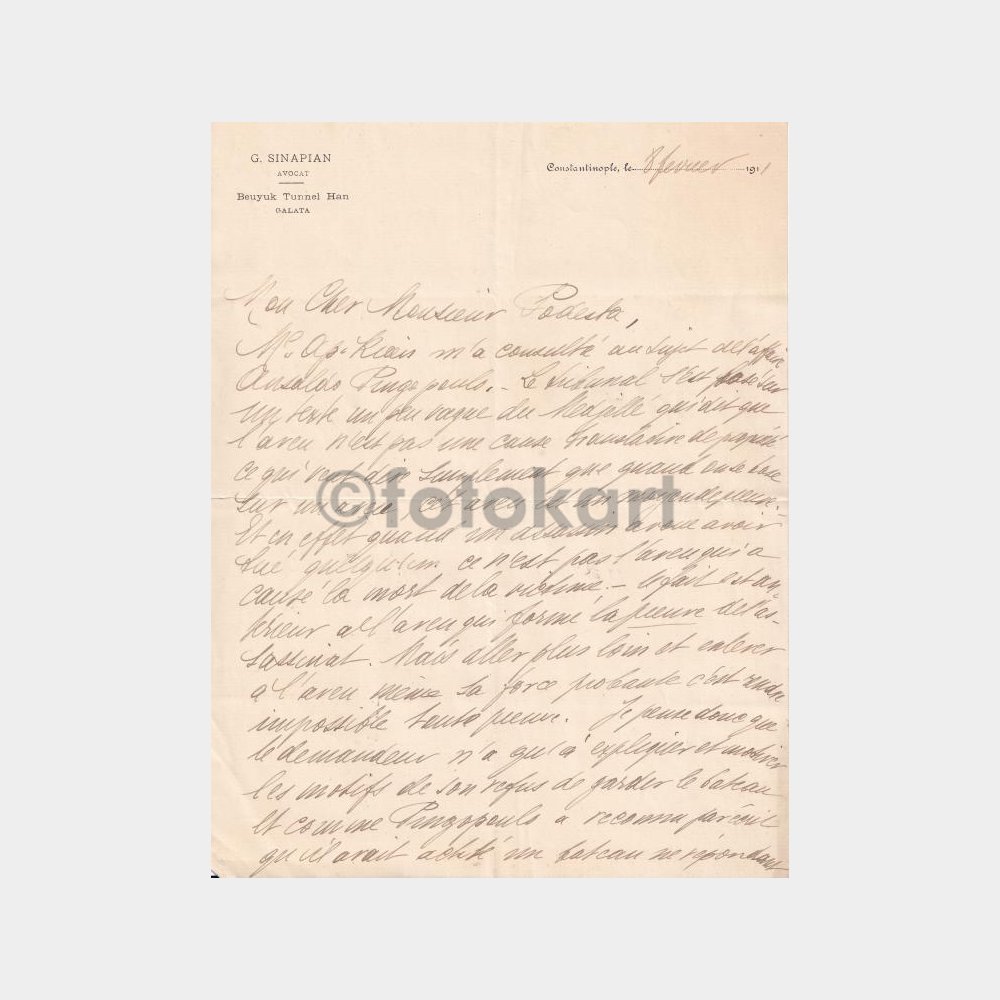 G. SINAPIAN
AVOCAT
Beuyuk Tunnel Han
GALATA
Constantinople, le 8 fevrier 1911
Mon Cher Monsieur Podesta,
Mr. m'a consulté au sujet de l'affaire
Ansaldo Pringopoulo. - Le tribunal s'est basé sur
un texte un peu vague du Medjellé qui dit que
l'aveu n'est pas une cause translative de propriété
ce qui veut dire simplement que quand on se base
sur un aveu cet aveu est
Et en effet quand un assassin avoue avoir
tué quelqu'un ce n'est pas l'aveu qui a
causé la mort de la victime. - Le fait est an-
térieur à l'aveu qui forme la preuve de l'as-
sassinat. Mais aller plus loin et enlever
à l'aveu même sa force probante c'est rendre
impossible toute preuve. Je pense donc que
le demandeur n'a qu'à expliquer et motiver
les motifs de son refus de garder le bateau
et comme Pringopoulo a reconnu par écrit
qu'il avait acheté un bateau ne répondant
©fotokart